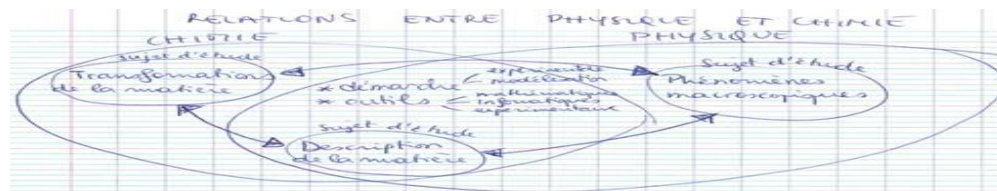 RELATIONS ENTRE PHYSIQUE ET CHIMIE
CHIMIE
PHYSIQUE
Sujet d'étude
Transformation
de la matière
* démarche
expérimentale
modélisation
* outils
mathématiques
informatiques
expérimentaux
Sujet d'étude
Phénomènes
macroscopiques
Sujet d'étude
Description
de la matière